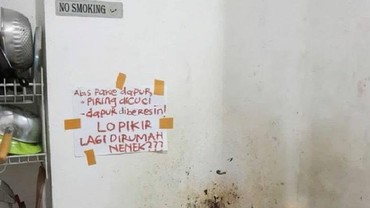 NO SMOKING
Abis Pake dapur,
- PiRiNG diCUCi
- dapur diberesin!
LO PIKIR
LAGI DIRUMAH
NENEK???